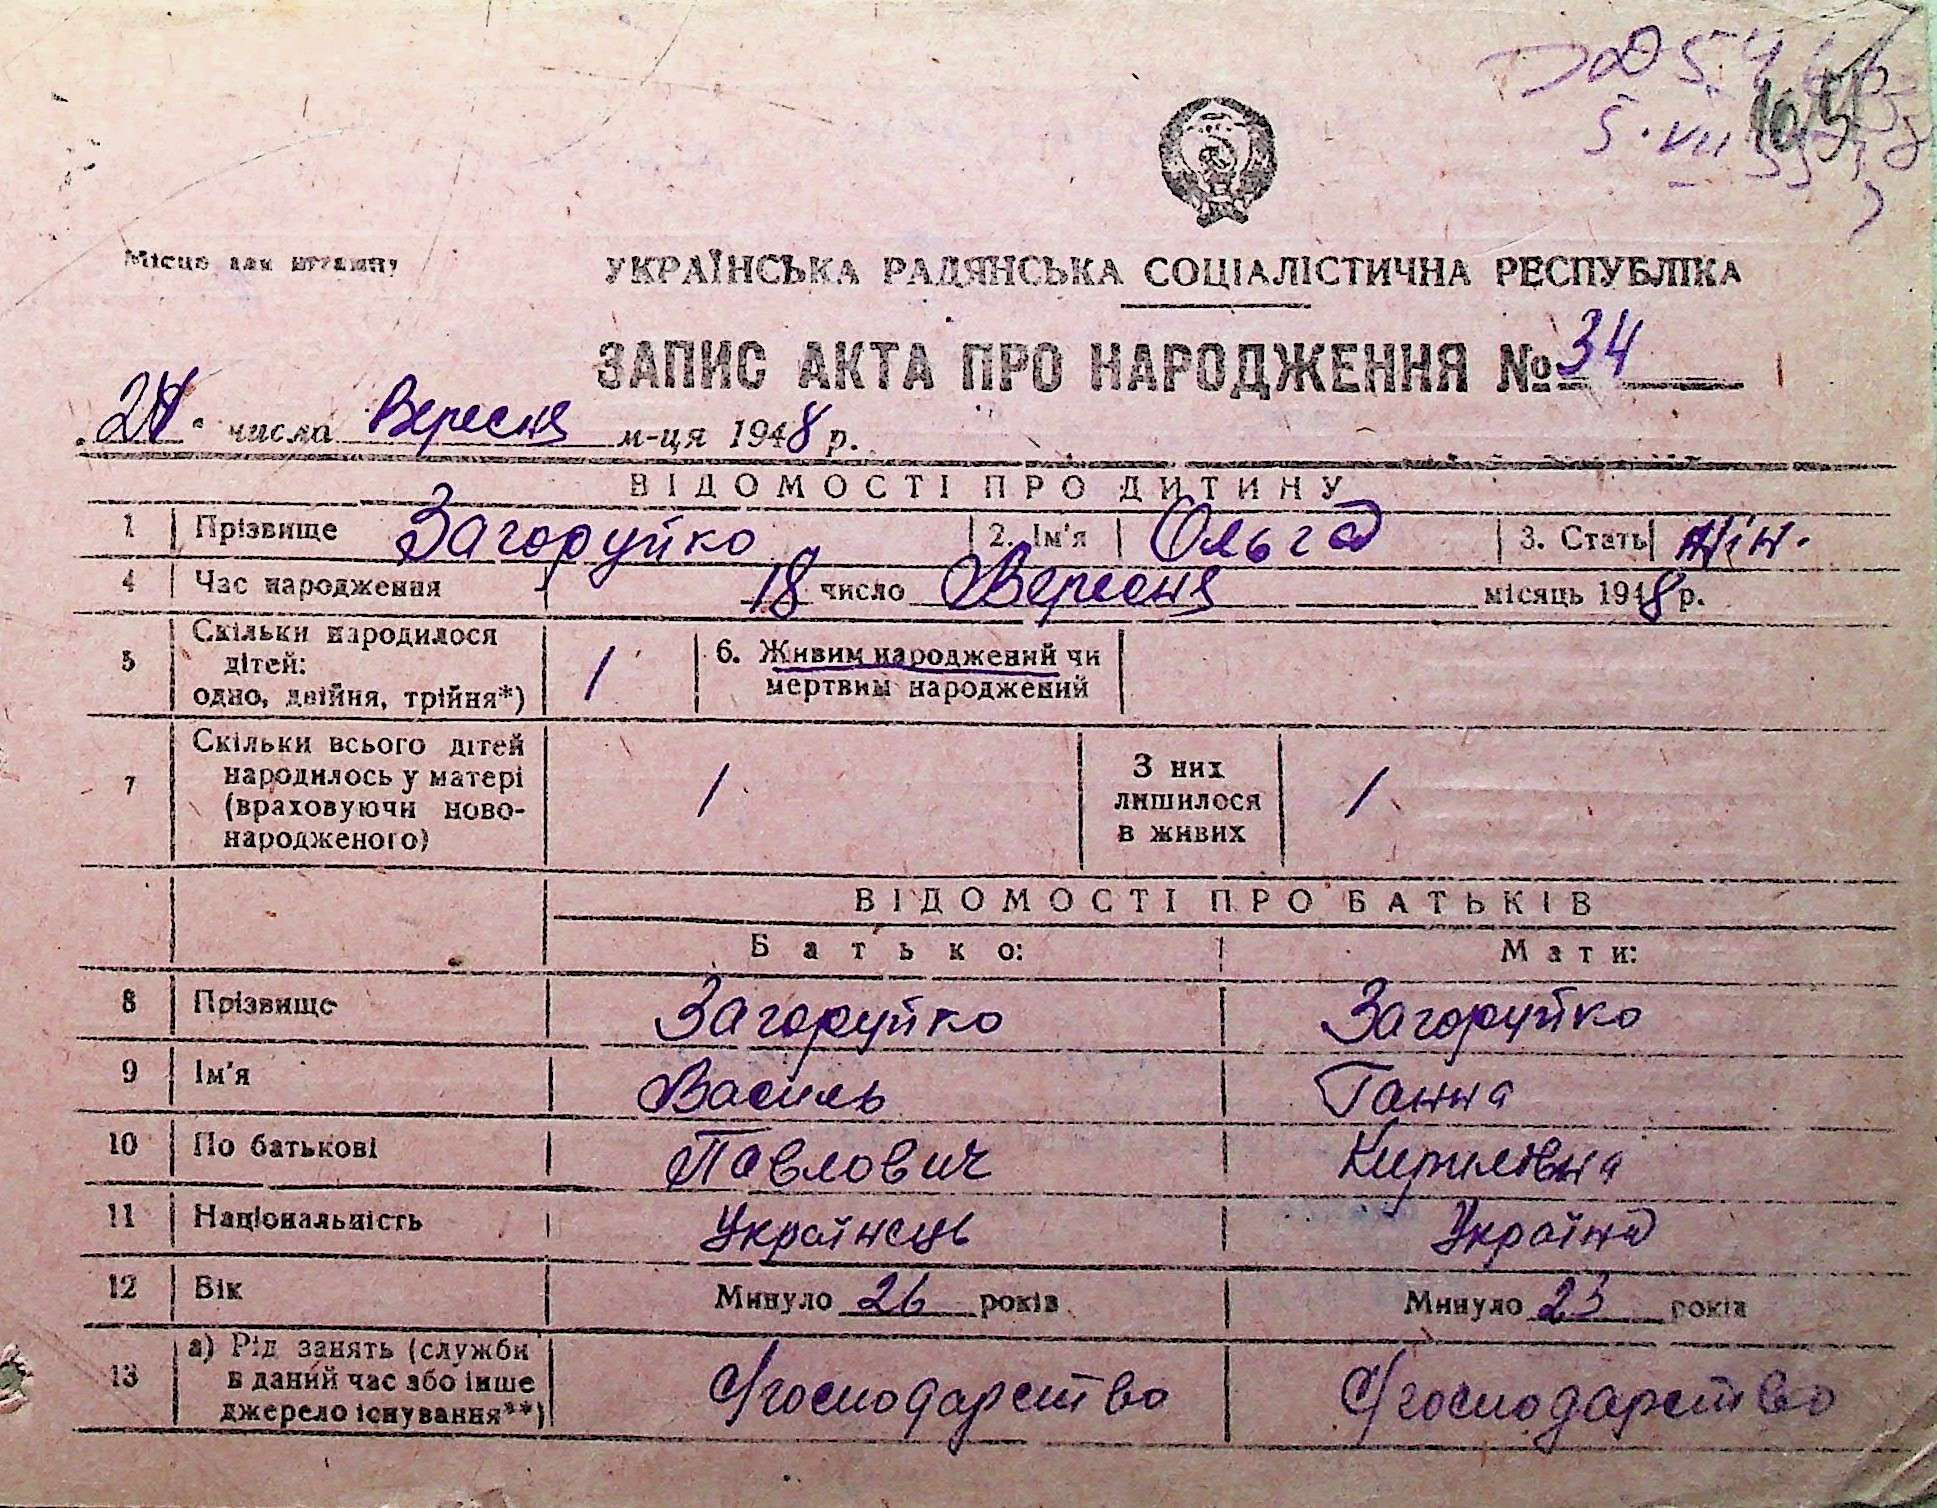 5. VII 55
105
Місце для штампу
УКРАЇНСЬКА РАДЯНСЬКА СОЦІАЛІСТИЧНА РЕСПУБЛІКА
ЗАПИС АКТА ПРО НАРОДЖЕННЯ № 34
числа Вересня м-ця 1948 р.
ВІДОМОСТІ ПРО ДИТИНУ
1 Прізвище Загоруйко 2. Ім'я Ольга 3. Стать жін.
4 Час народження 18 число Вересня місяць 1948 р.
5 Скільки народилося
дітей:
одно, двійня, трійня*) 1 6. Живим народжений чи
мертвим народжений
7 Скільки всього дітей
народилось у матері
(враховуючи ново-
народженого) 1 З них
лишилося
в живих 1
ВІДОМОСТІ ПРО БАТЬКІВ
Батько: Мати:
8 Прізвище Загоруйко Загоруйко
9 Ім'я Василь Ганна
10 По батькові Павлович Кирилівна
11 Національність Українець Україна
12 Вік Минуло 26 років Минуло 23 років
13 а) Рід занять (служби
в даний час або інше
джерело існування**) С/господарство С/господарство